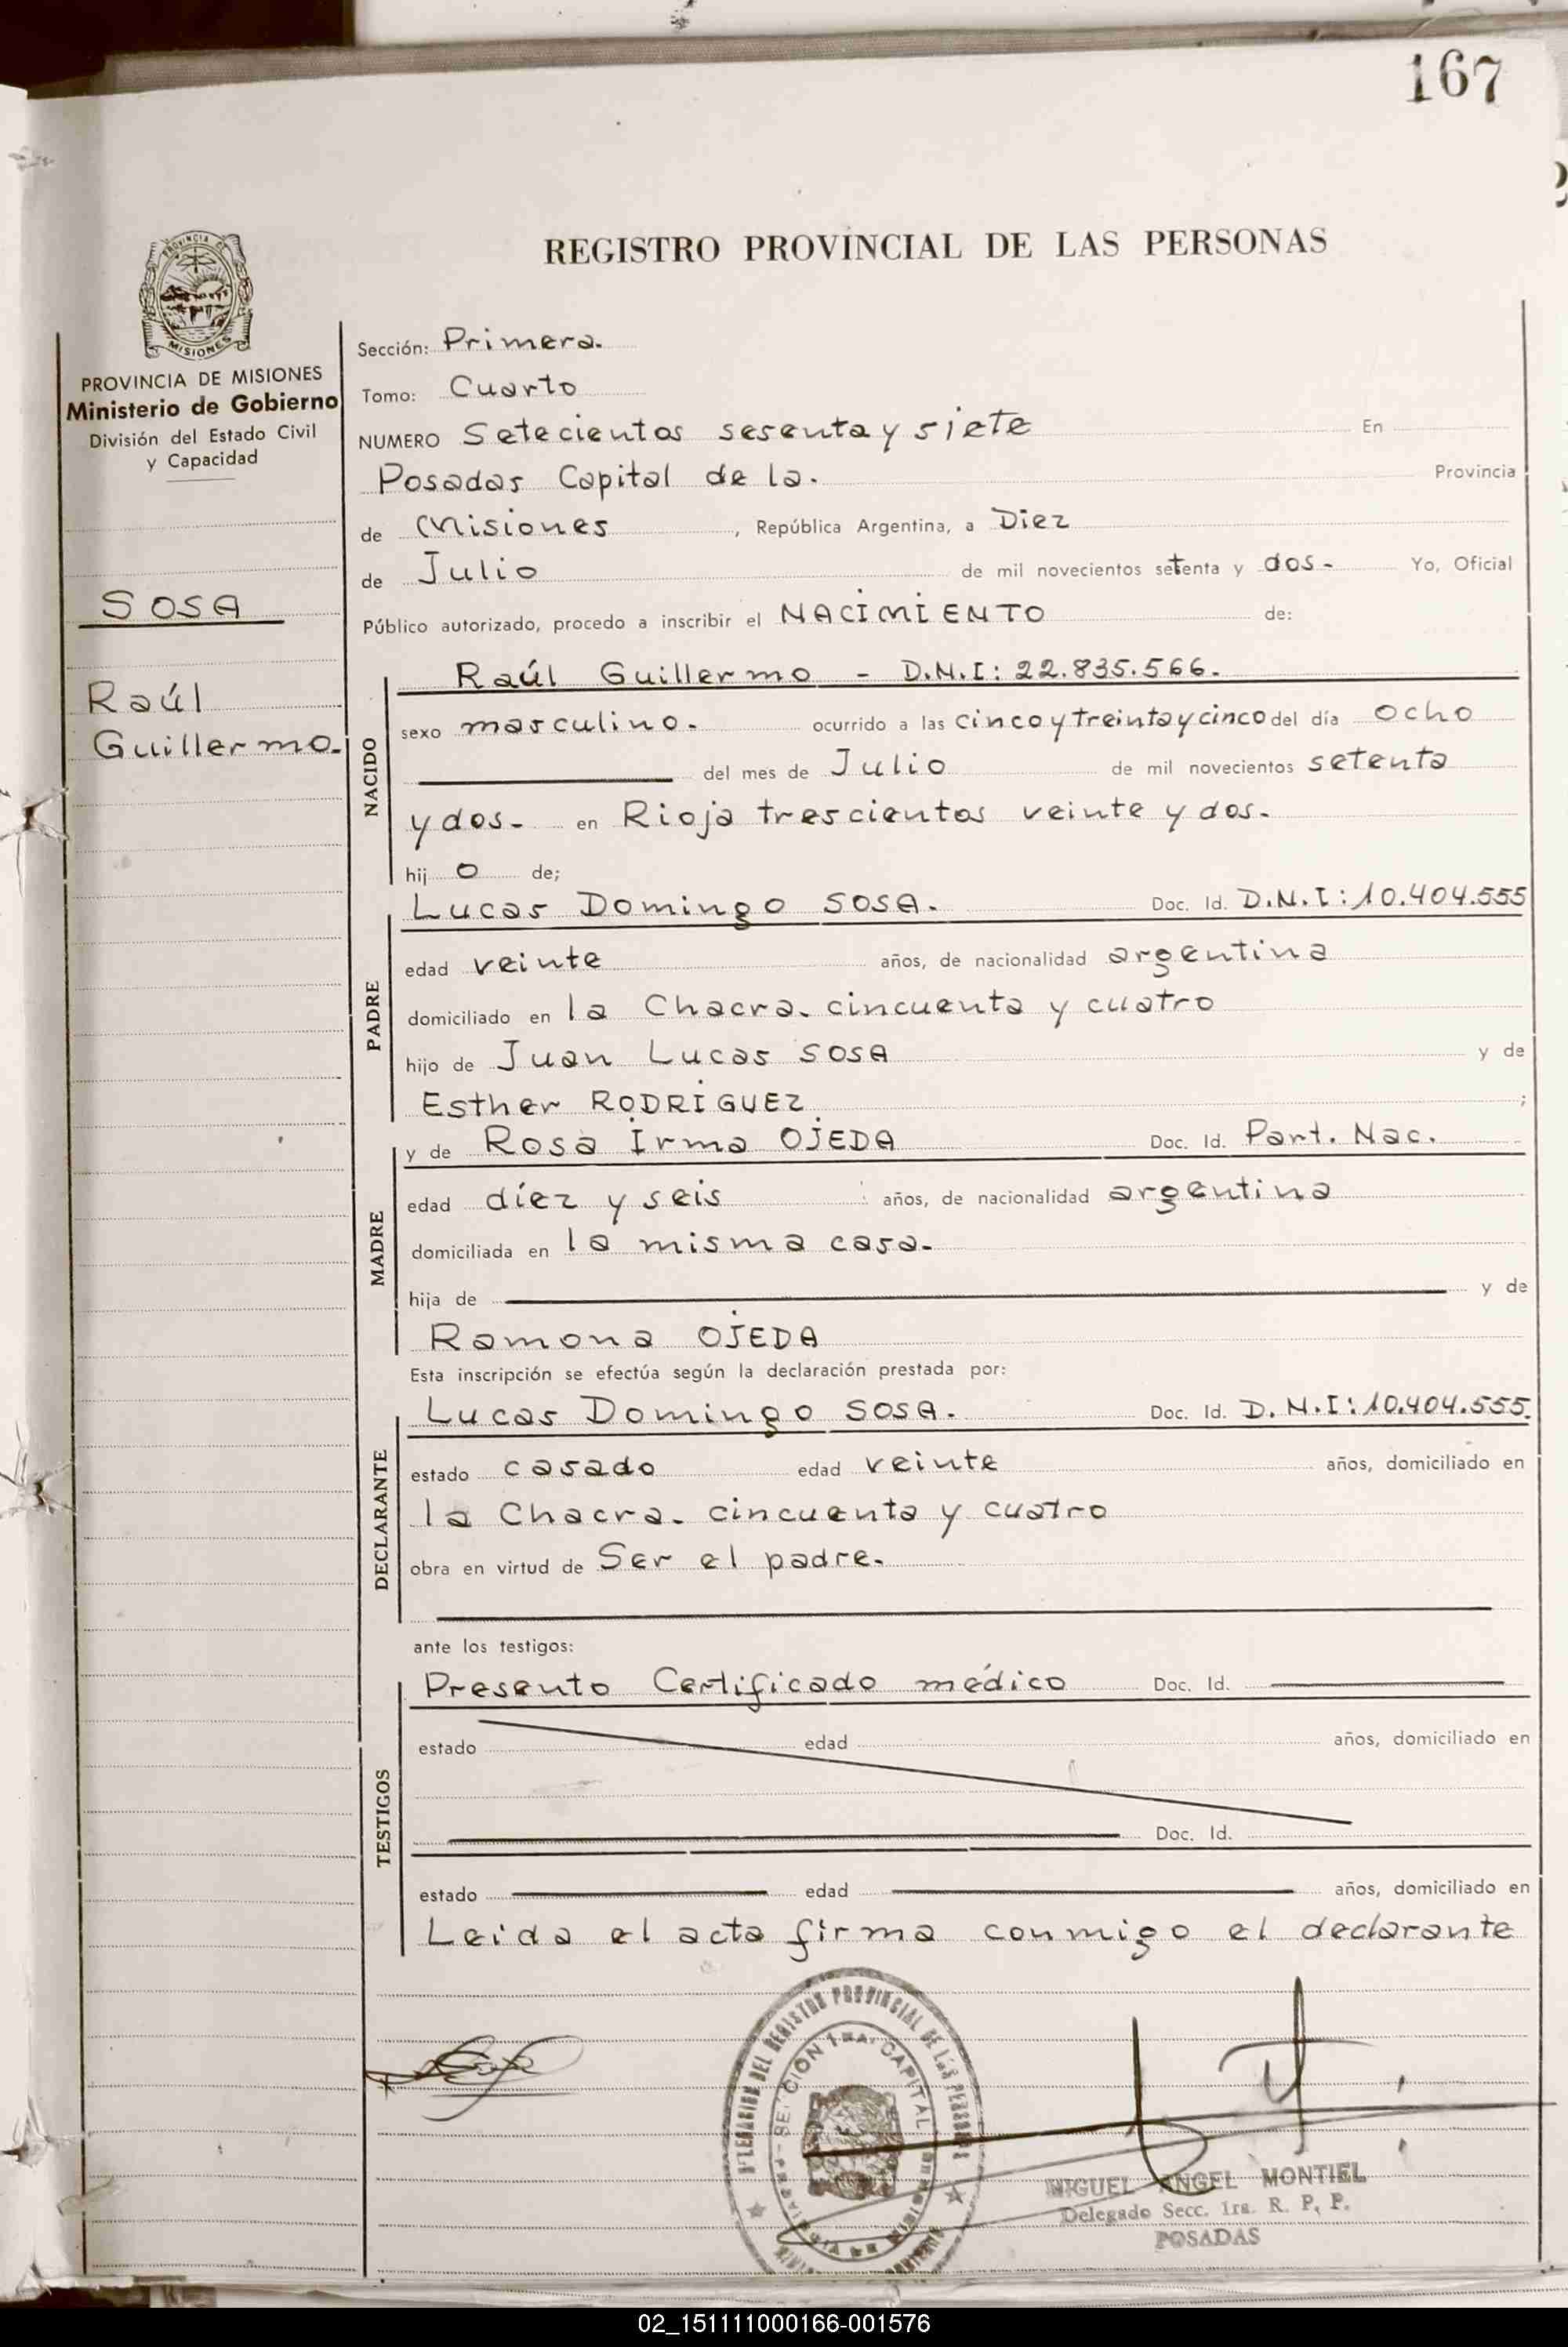 167
REGISTRO PROVINCIAL DE LAS PERSONAS
PROVINCIA DE
MISIONES
PROVINCIA DE MISIONES
Ministerio de Gobierno
División del Estado Civil
y Capacidad
SOSA
Raúl
Guillermo.
Sección: Primera.
Tomo: Cuarto
NUMERO Setecientos sesenta y siete En
Posadas Capital de la. Provincia
de Misiones, República Argentina, a Diez
de Julio de mil novecientos setenta y dos- Yo, Oficial
Público autorizado, procedo a inscribir el NACIMIENTO de:
NACIDO
Raúl Guillermo - D.N.I: 22.835.566.
sexo masculino. ocurrido a las cinco y treinta y cinco del día ocho
del mes de Julio de mil novecientos setenta
y dos- en Rioja trescientos veinte y dos.
hij o de;
PADRE
Lucas Domingo SOSA. Doc. Id. D.N.I: 10.404.555
edad veinte años, de nacionalidad argentina
domiciliado en la Chacra. cincuenta y cuatro
hijo de Juan Lucas SOSA y de
Esther RODRIGUEZ ;
MADRE
y de Rosa Irma OJEDA Doc. Id. Part. Nac.
edad diez y seis años, de nacionalidad argentina
domiciliada en la misma casa.
hija de y de
Ramona OJEDA
Esta inscripción se efectúa según la declaración prestada por:
DECLARANTE
Lucas Domingo SOSA. Doc. Id. D.N.I: 10.404.555.
estado casado edad veinte años, domiciliado en
la Chacra. cincuenta y cuatro
obra en virtud de Ser el padre.
ante los testigos:
TESTIGOS
Presento Certificado médico Doc. Id.
estado edad años, domiciliado en
Doc. Id.
estado edad años, domiciliado en
Leida el acta firma conmigo el declarante
DEL REGISTRO PROVINCIAL DE LAS PERSONAS
SECCION 1ra. CAPITAL
MIGUEL ANGEL MONTIEL
Delegado Secc. 1ra. R. P. P.
POSADAS
02_151111000166-001576